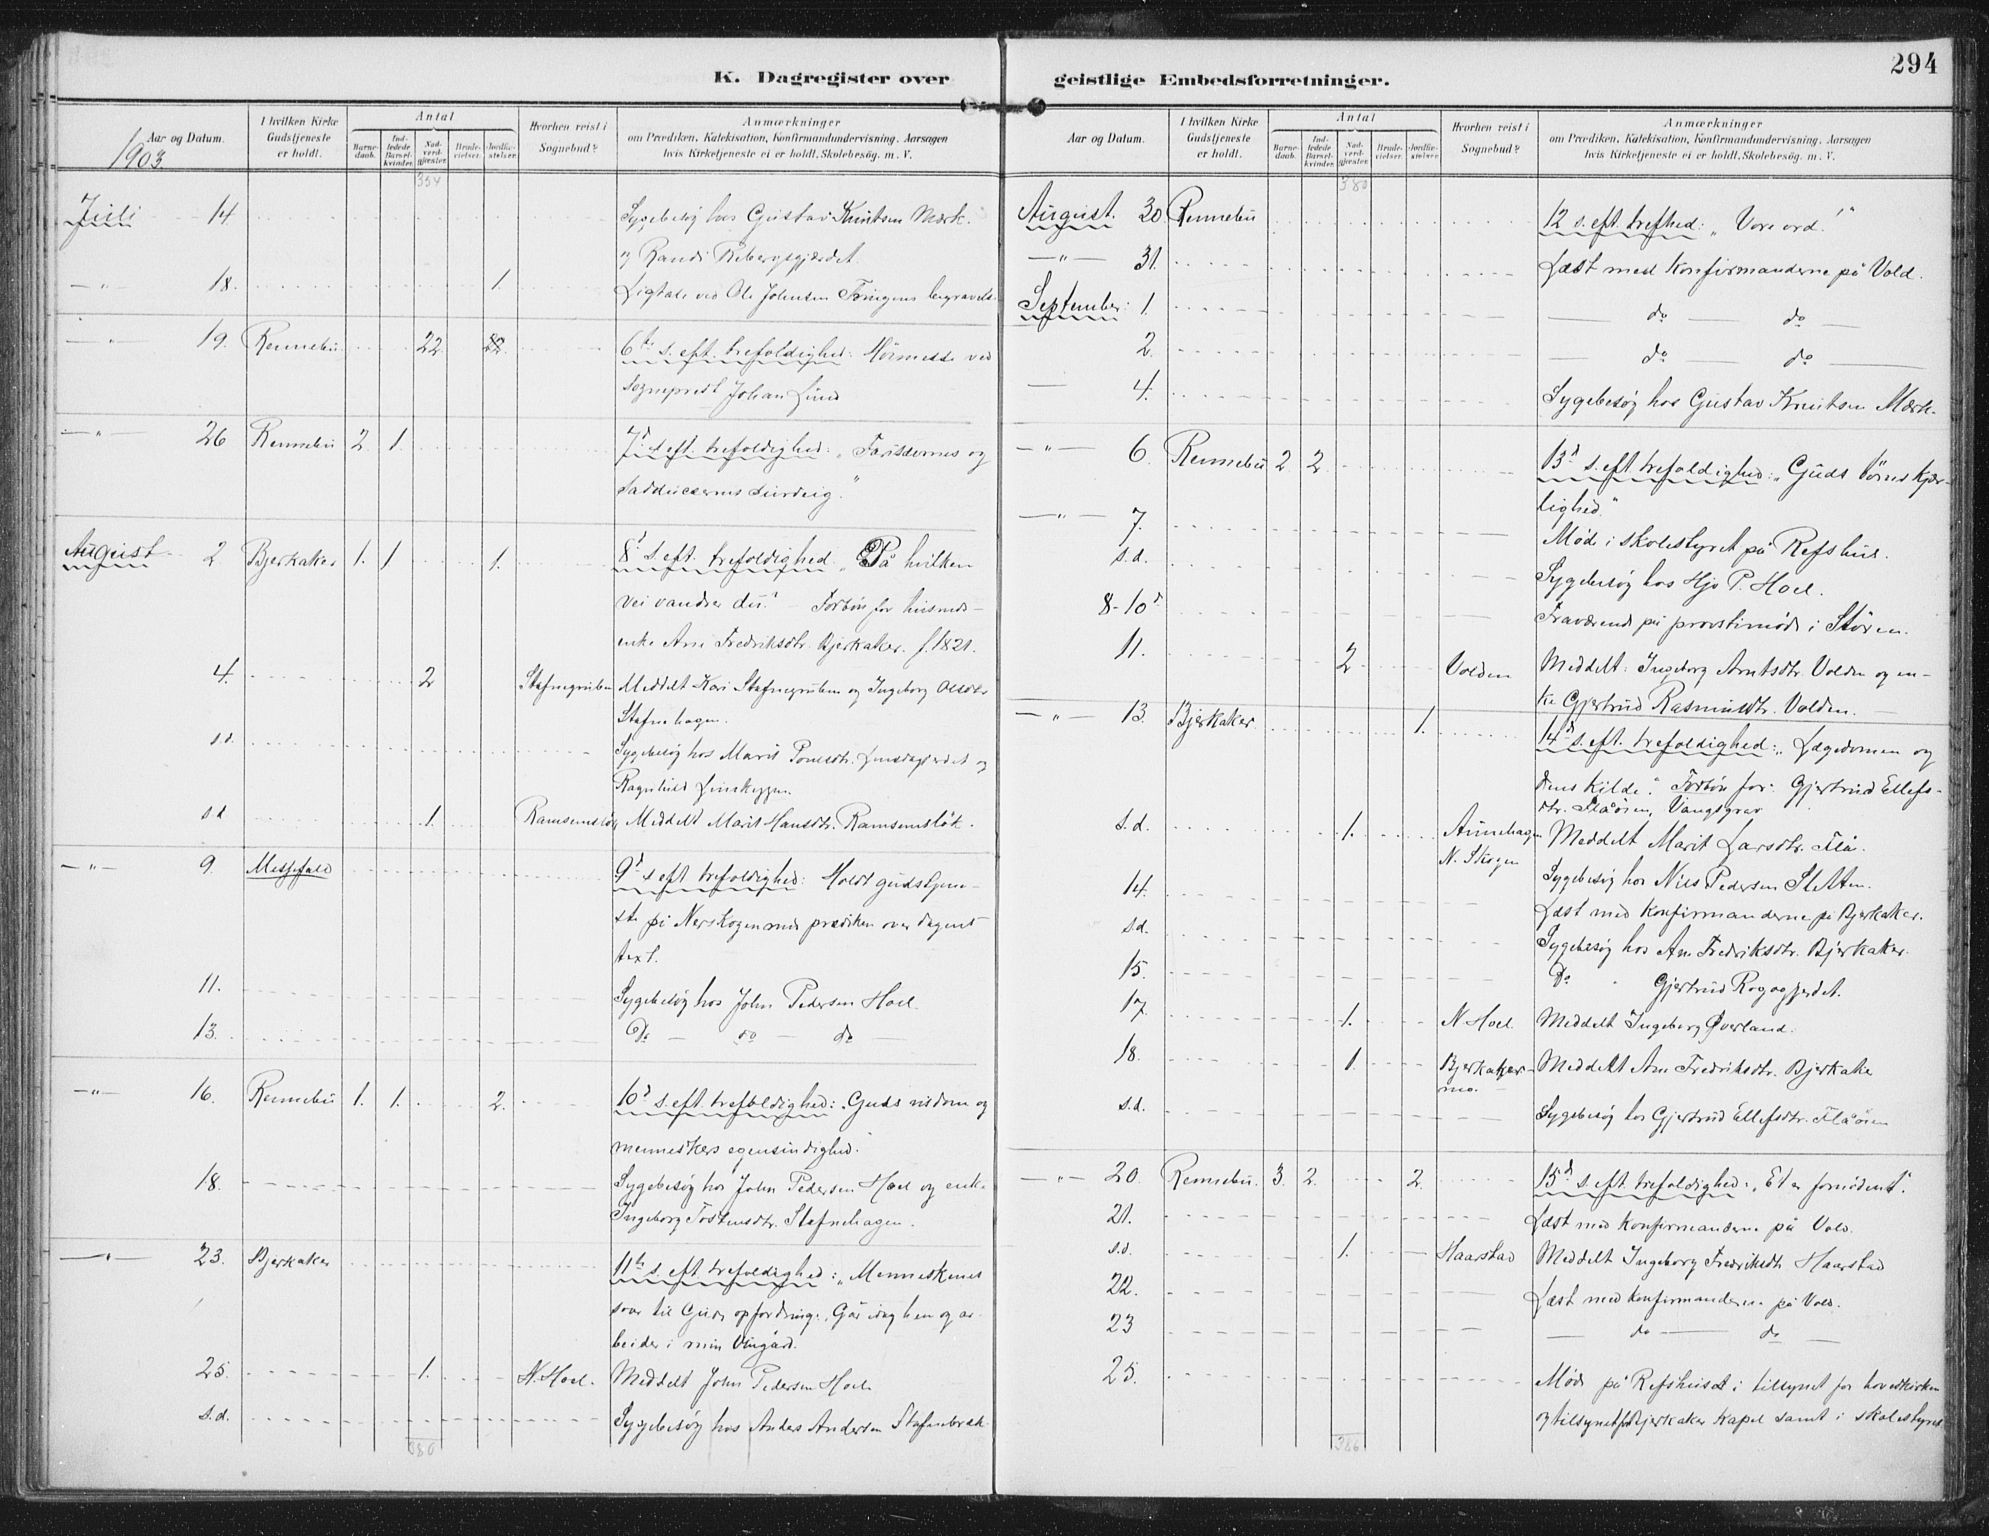 294
K. Dagregister over geistlige Embedsforretninger.
Aar og Datum.
I hvilken Kirke Gudstjeneste er holdt.
Antal
Barnedaab.
Indledede Barselkvinder.
Nadverdgjæster.
Brudevielser.
Jordfæstelser.
Hvorhen reist i Sognebud?
Anmærkninger
om Prædiken, Katekisation, Konfirmandundervisning, Aarsagen
hvis Kirketjeneste ei er holdt, Skolebesøg. m. V.
1903.
354
Juli 14. Sygebesøg hos Gustav Knutsen Mærk.
og Randi
—"— 18. 1. Ligtale ved Ole Johnsen begravels.
" 19. Rennebu 22 6te s. eft. trefoldighed: Høimesse ved
sogneprest Johan Lund
—"— 26 Rennebu 2. 1. 7d s. eft. trefoldighed: „Farisæernes og
sadducæernes surdeig."
August 2 Bjerkaker 1. 1 1. 8d s. eft. trefoldighed. „På hvilken
vei vandrer du." — Forbøn for husmands-
enke Ane Fredriksdtr. Bjerkaker. f. 1821.
4. 2 Stafnegruben Meddelt Kari Stafnegruben og Ingeborg Olsdtr
Stafnehagen.
s.d. Sygebesøg hos Marit og
Ragnhild
s.d 1. Meddelt Marit Hansdtr. Ramsemsløk.
—"— 9. Messefald 9d s. eft trefoldighed: Holdt gudstjene-
ste på Nerskogen med prædiken over dagens
text.
11. Sygebesøg hos John Pedersen Hoel.
13. Do — do — do —
—"— 16. Rennebu 1. 1. 2. 10d s. eft. trefoldighed: „Guds visdom og
menneskers egensindighed."
18. Sygebesøg hos John Pedersen Hoel og enke
Ingeborg Tostensdtr. Stafnehagen.
—"— 23. Bjerkaker 11te s. eft. trefoldighed: „Menneskenes
svar til Guds opfordring: „Gå idag hen og ar-
beider i min Vingård.
25. 1. N. Hoel. Meddelt John Pedersen Hoel
s.d. Sygebesøg hos Anders Andersen Stafnebræk
380
Aar og Datum.
I hvilken Kirke Gudstjeneste er holdt.
Antal
Barnedaab.
Indledede Barselkvinder.
Nadverdgjæster.
Brudevielser.
Jordfæstelser.
Hvorhen reist i Sognebud?
Anmærkninger
om Prædiken, Katekisation, Konfirmandundervisning, Aarsagen
hvis Kirketjeneste ei er holdt, Skolebesøg. m. V.
380
August. 30. Rennebu 12 s. eft. trefhed: „Vore ord."
—"— 31. Læst med konfirmanderne på Vold.
September: 1. — do — do —
2. — do — do —
— 4. Sygebesøg hos Gustav Knutsen Mærk.
—"— 6. Rennebu 2 2 13d s. eft trefoldighed: „Guds børns kjær-
lighed."
—"— 7. Møde i skolestyret på Refshus.
s.d. Sygebesøg hos Hjo P. Hoel.
8-10d Fraværende på provstimøde i Støren.
11. 2 Volden Meddelt: Ingeborg Arntsdtr. Volden og en-
ke Gjertrud Rasmusdtr. Volden.
—"— 13. Bjerkaker 1. 14d s. eft. trefoldighed: „Lægedommen og
dens kilde". Forbøn for: Gjertrud Ellefs-
dtr. Flåøien, Vangsgrav
s.d. 1. Aunehagen N. Skogen Meddelt Marit Larsdtr. Flå.
14. Sygebesøg hos Nils Pedersen Sletten.
s.d. Læst med konfirmanderne på Bjerkaker.
Sygebesøg hos Ane Fredriksdtr. Bjerkaker.
15. Do " Gjertrud
17. 1. N Hoel. Meddelt Ingeborg Øverland.
18. 1. Bjerkakermo. Meddelt Ane Fredriksdtr. Bjerkake
s.d. Sygebesøg hos Gjertrud Ellefsdtr. Flåøien
—"— 20. Rennebu. 3. 2. 2. 15d s. eft. trefoldighed: „Et er fornødent".
21. Læst med konfirmanderne på Vold.
s.d. 1. Haarstad Meddelt Ingeborg Fredriksdtr Haarstad
22. Læst med konfirmanderne på Vold.
23 — do — do —
25. Møde på Refshuset i tilsynet for hovedkirken
og tilsynet for Bjerkaker kapel samt i skolestyret
386